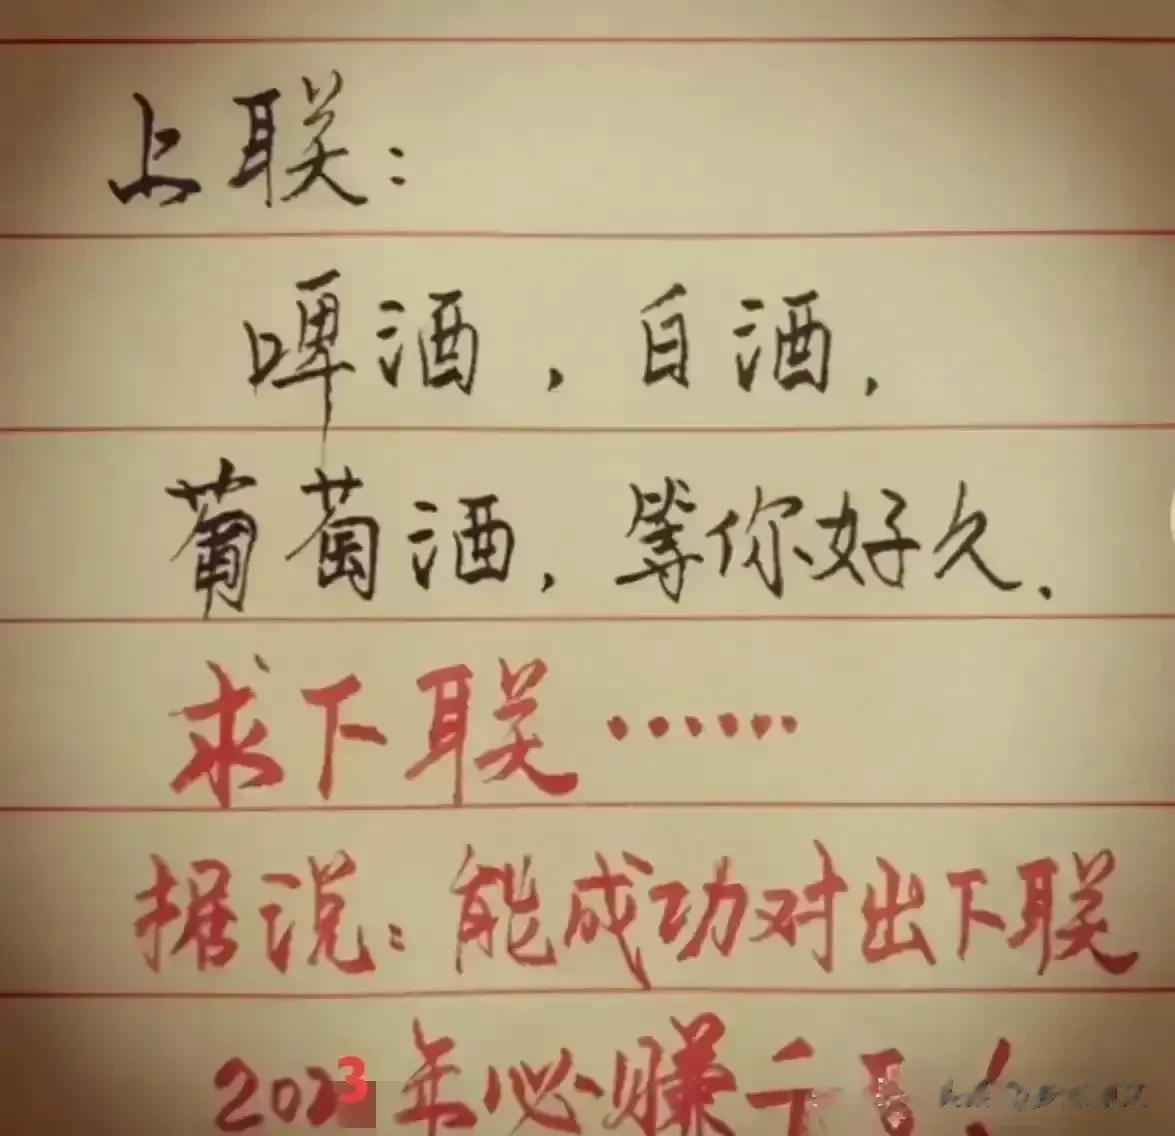 上联：
啤酒，白酒，
葡萄酒，等你好久.
求下联……
据说：能成功对出下联
2023年必赚千万！